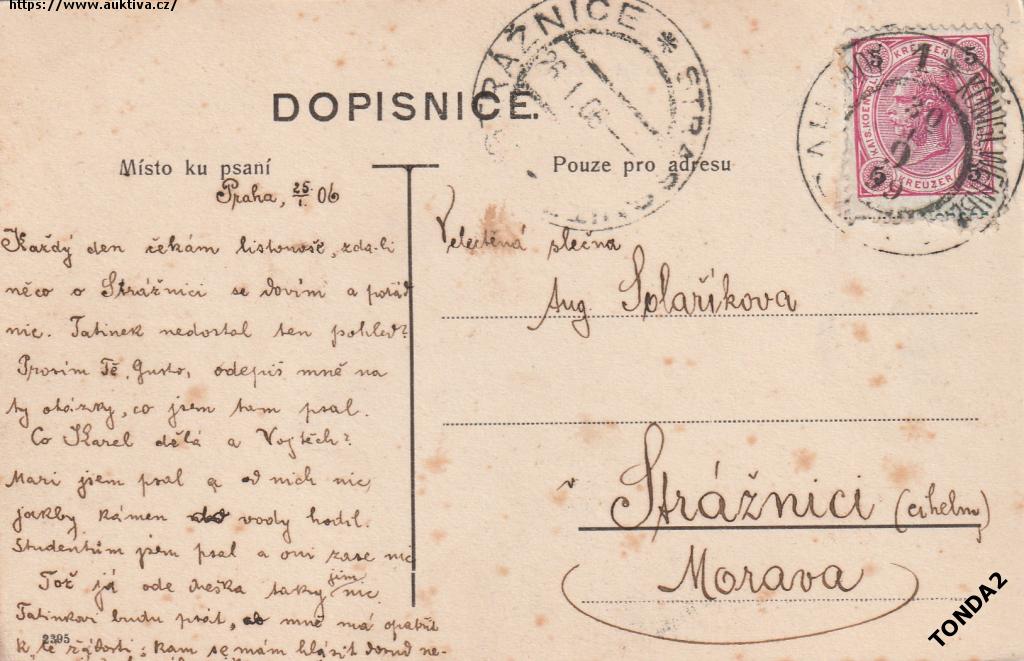 https://www.auktiva.cz/
STRÁŽNICE * STRA
26.1.06
5 KREUZER 5
KAIS. KOENIGL.
5 KREUZER 5
DOPISNICE.
Místo ku psaní
Pouze pro adresu
Praha, 25/1. 06
Každý den čekám listonoše, zda-li
něco o Strážnici se dovím a pořád
nic. Tatinek nedostal ten pohled?
Prosím Tě, Gusto, odepiš mně na
ty otázky, co jsem tam psal.
Co Karel dělá a Vojtěch?
Mari jsem psal a od nich nic,
jakby kámen do vody hodil.
Studentům jsem psal a oni zase nic
Tož já ode dneška taky jim nic.
Tatinkovi budu psát, mně má opatřit
k té řádosti; kam se mám hlásit dosud ne-
2395
Velectěná slečna
Aug. Solaříkova
v Strážnici (cihelm)
Morava
TONDA2